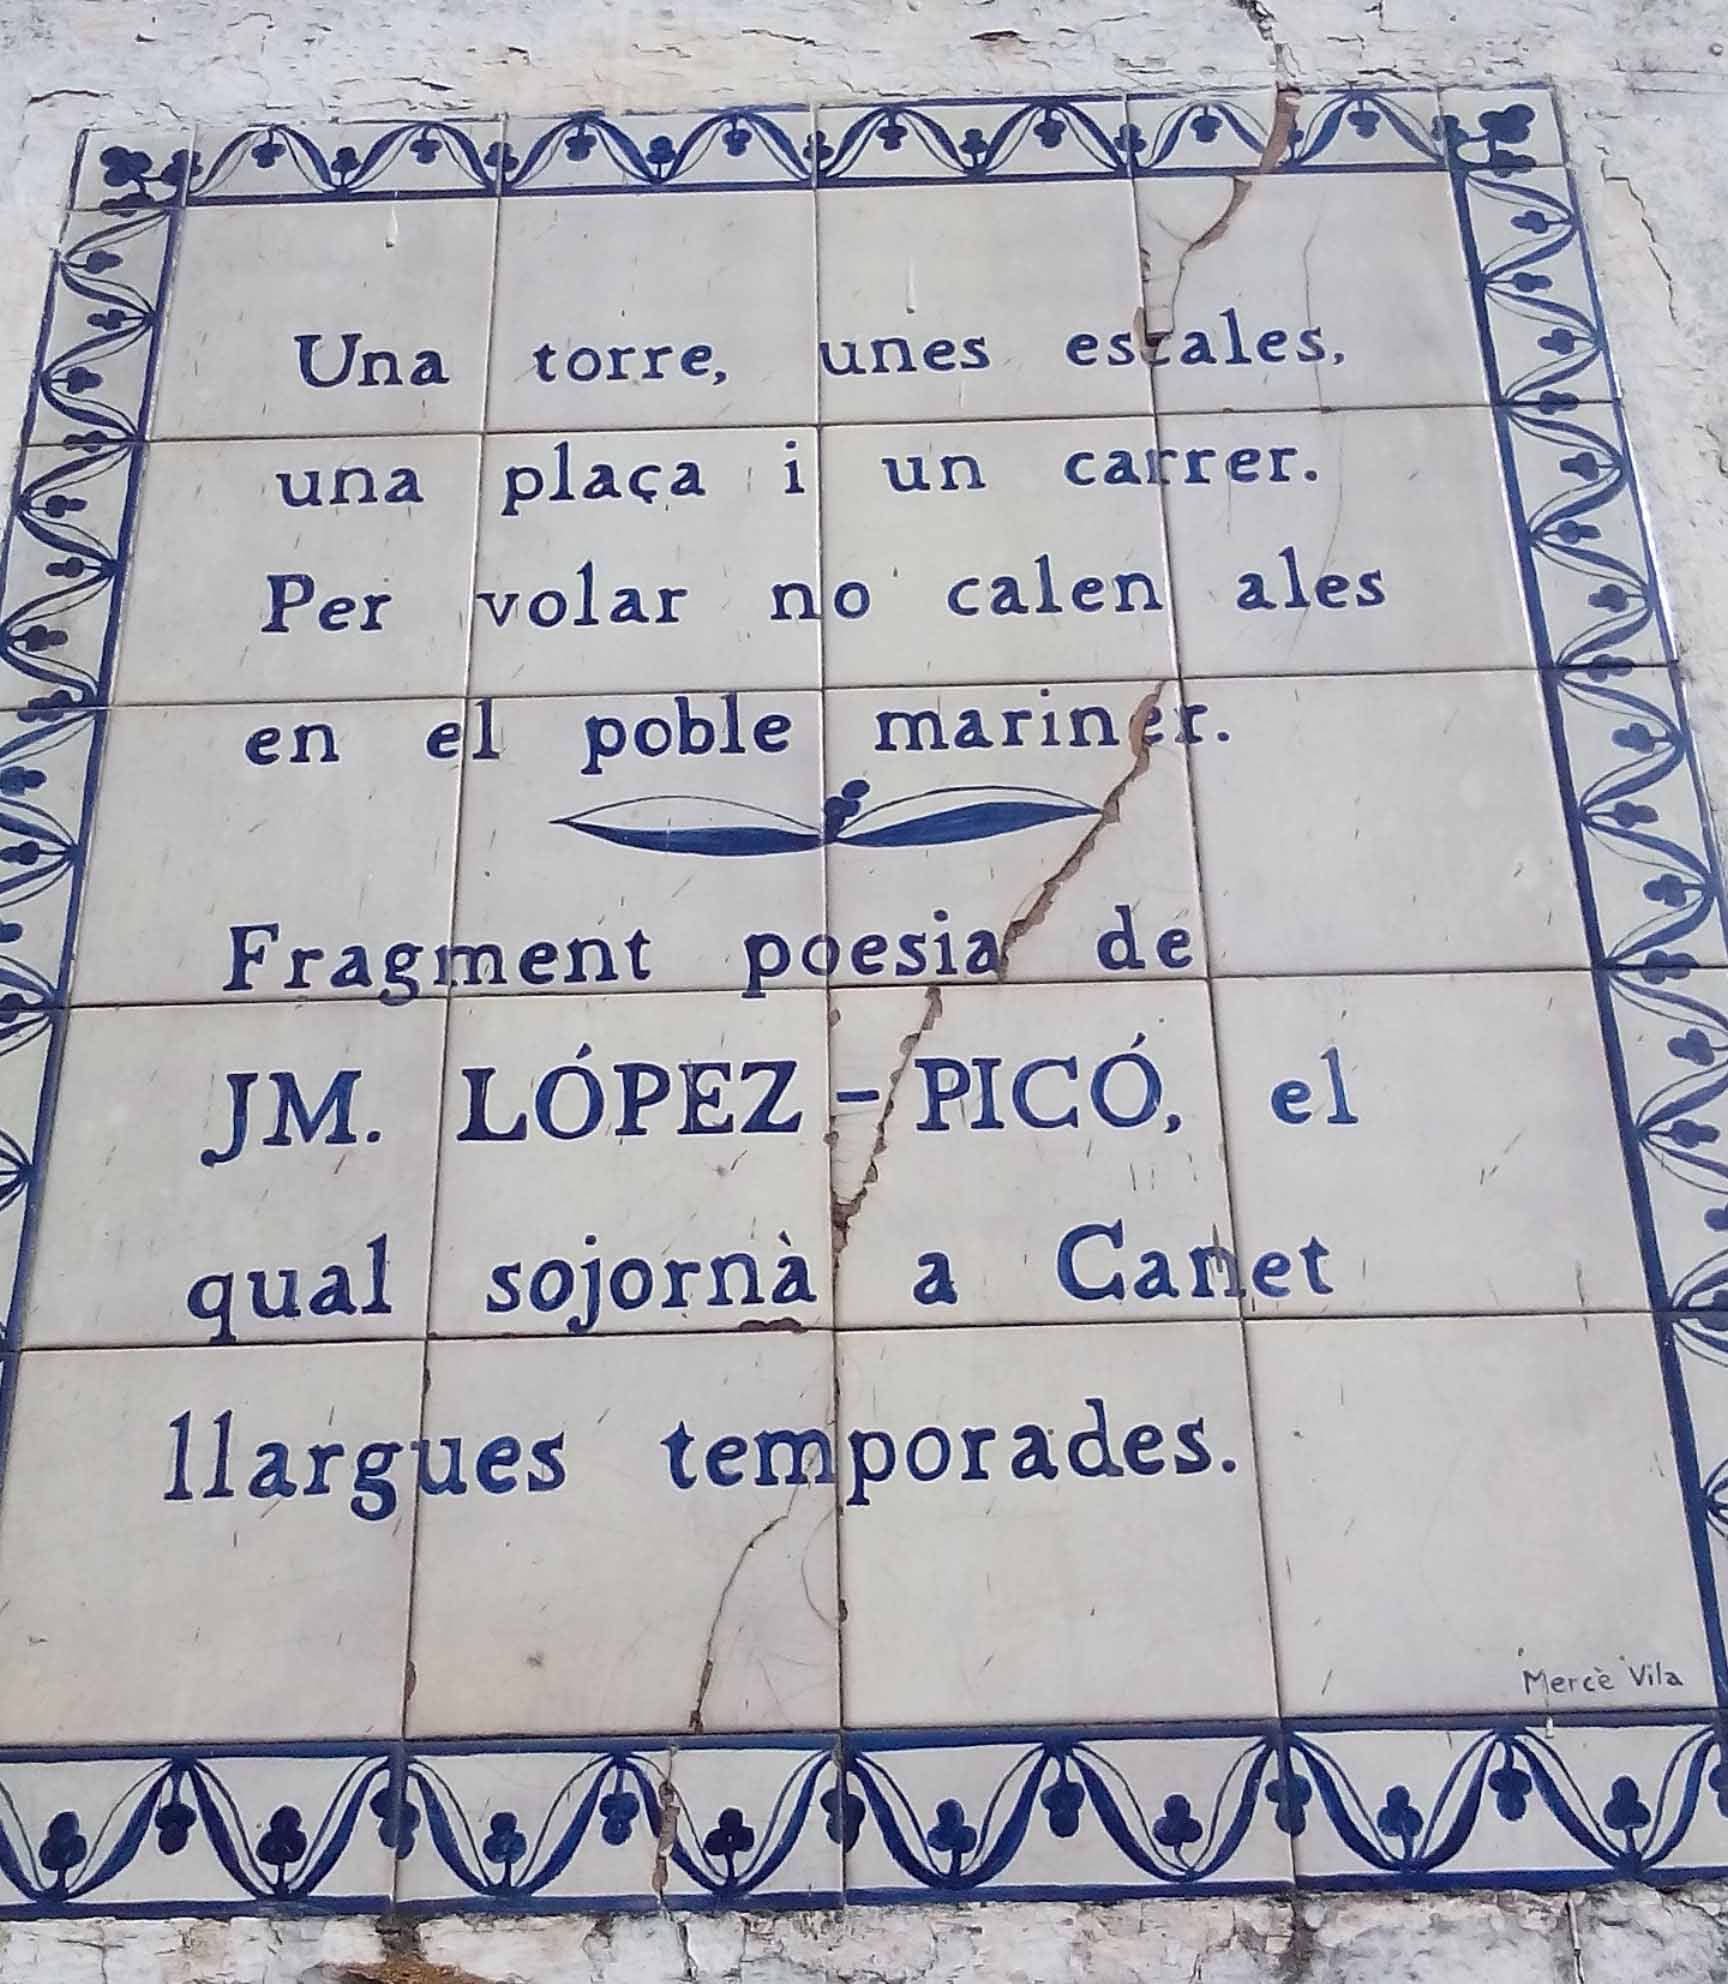 Una torre, unes escales,
una plaça i un carrer.
Per volar no calen ales
en el poble mariner.
Fragment poesia de
JM. LÓPEZ-PICÓ, el
qual sojornà a Canet
llargues temporades.
Mercè Vila